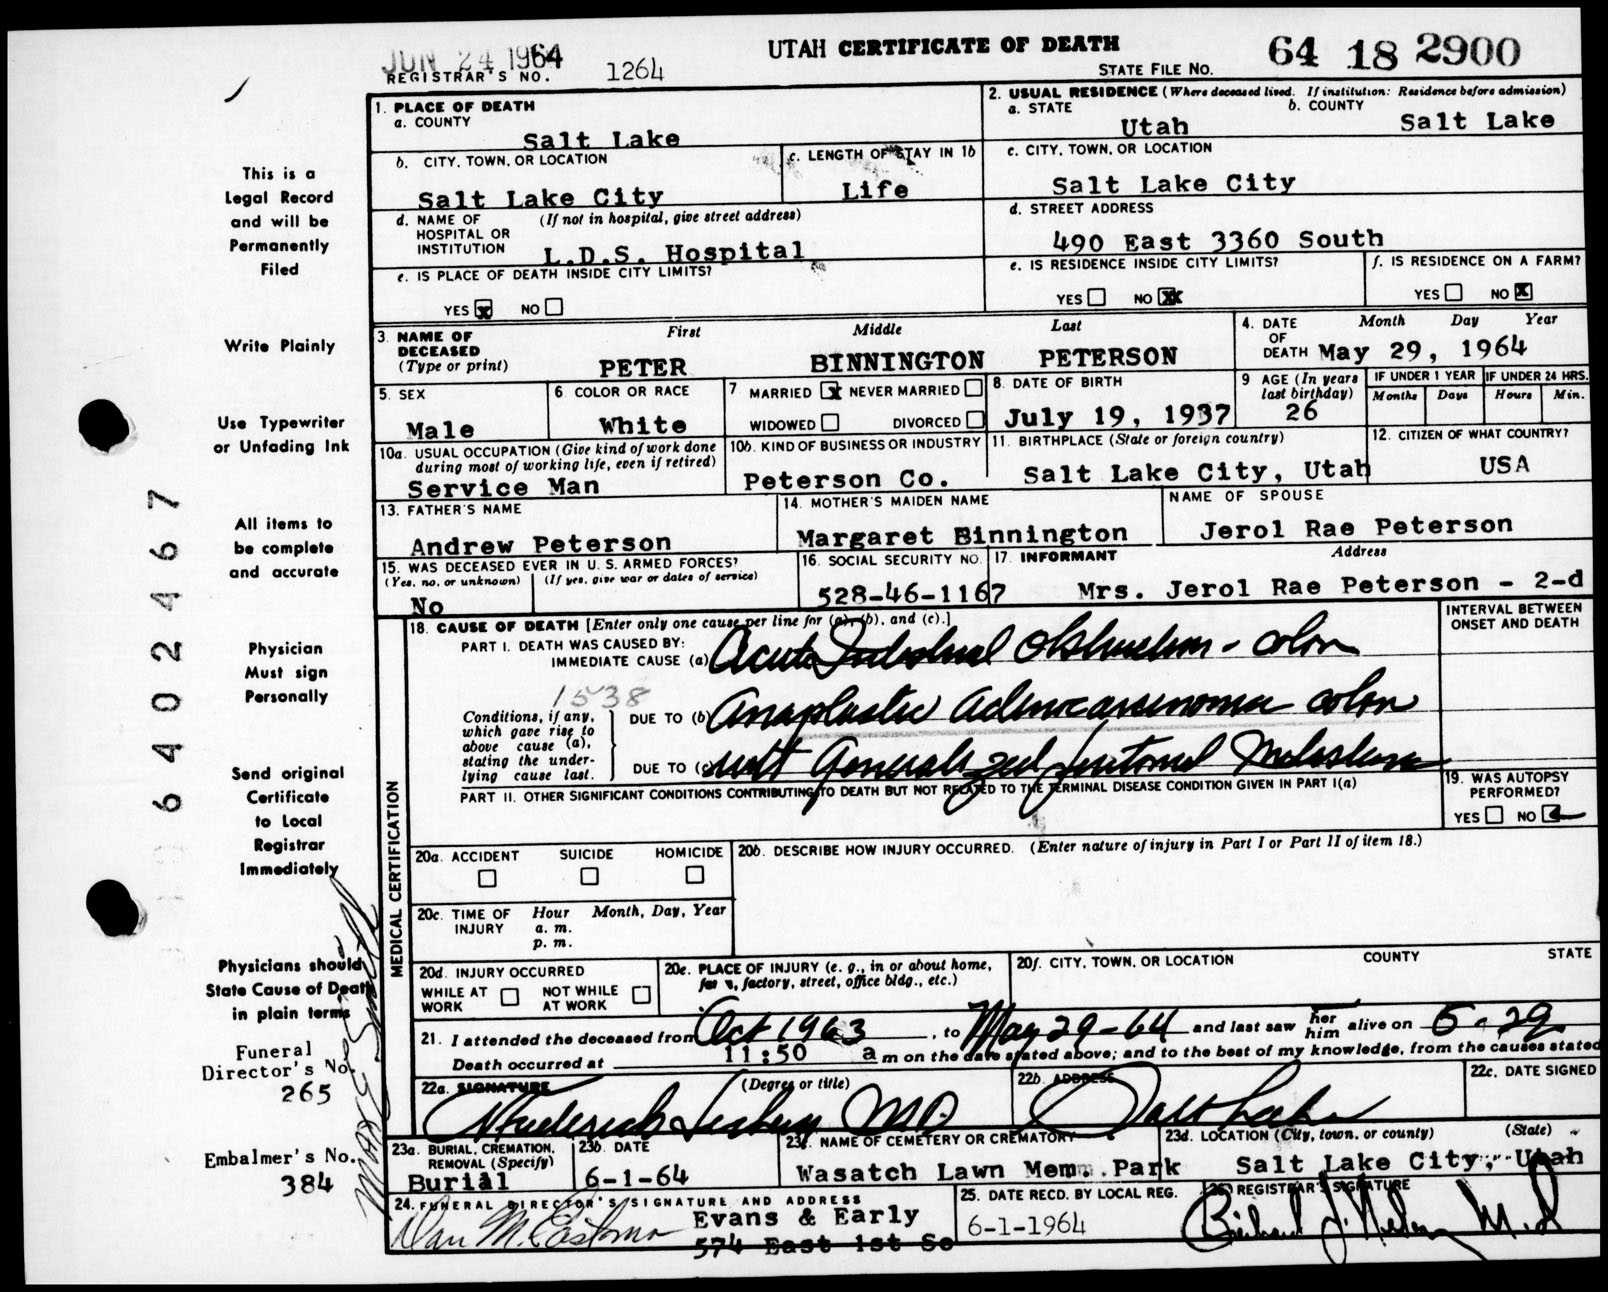 JUN 24 1964
UTAH CERTIFICATE OF DEATH
REGISTRAR'S NO. 1264
STATE FILE NO. 64 18 2900
1. PLACE OF DEATH
a. COUNTY
Salt Lake
2. USUAL RESIDENCE (Where deceased lived. If institution: Residence before admission)
a. STATE Utah b. COUNTY Salt Lake
b. CITY, TOWN, OR LOCATION
Salt Lake City
c. LENGTH OF STAY IN 1b
Life
c. CITY, TOWN, OR LOCATION
Salt Lake City
d. NAME OF HOSPITAL OR INSTITUTION (If not in hospital, give street address)
L.D.S. Hospital
d. STREET ADDRESS
490 East 3360 South
e. IS PLACE OF DEATH INSIDE CITY LIMITS?
YES x NO
e. IS RESIDENCE INSIDE CITY LIMITS?
YES NO xx
f. IS RESIDENCE ON A FARM?
YES NO x
3. NAME OF DECEASED (Type or print)
First Middle Last
PETER BINNINGTON PETERSON
4. DATE OF DEATH Month Day Year
May 29, 1964
5. SEX
Male
6. COLOR OR RACE
White
7 MARRIED x NEVER MARRIED
WIDOWED DIVORCED
8. DATE OF BIRTH
July 19, 1937
9 AGE (In years last birthday)
26
IF UNDER 1 YEAR IF UNDER 24 HRS.
Months Days Hours Min.
10a. USUAL OCCUPATION (Give kind of work done during most of working life, even if retired)
Service Man
10b. KIND OF BUSINESS OR INDUSTRY
Peterson Co.
11. BIRTHPLACE (State or foreign country)
Salt Lake City, Utah
12. CITIZEN OF WHAT COUNTRY?
USA
13. FATHER'S NAME
Andrew Peterson
14. MOTHER'S MAIDEN NAME
Margaret Binnington
NAME OF SPOUSE
Jerol Rae Peterson
15. WAS DECEASED EVER IN U.S. ARMED FORCES?
(Yes, no, or unknown) (If yes, give war or dates of service)
No
16. SOCIAL SECURITY NO.
528-46-1167
17. INFORMANT Address
Mrs. Jerol Rae Peterson - 2-d
18. CAUSE OF DEATH [Enter only one cause per line for (a), (b), and (c).]
INTERVAL BETWEEN ONSET AND DEATH
PART I. DEATH WAS CAUSED BY:
IMMEDIATE CAUSE (a) Acute Intestinal Obstruction - colon
1538
Conditions, if any, which gave rise to above cause (a), stating the underlying cause last.
DUE TO (b) Anaplastic adenocarsenoma colon
DUE TO (c) with Generalized
PART II. OTHER SIGNIFICANT CONDITIONS CONTRIBUTING TO DEATH BUT NOT RELATED TO THE TERMINAL DISEASE CONDITION GIVEN IN PART I(a)
19. WAS AUTOPSY PERFORMED?
YES NO
MEDICAL CERTIFICATION
20a. ACCIDENT SUICIDE HOMICIDE
20b. DESCRIBE HOW INJURY OCCURRED. (Enter nature of injury in Part I or Part II of item 18.)
20c. TIME OF INJURY Hour Month, Day, Year
a. m.
p. m.
20d. INJURY OCCURRED
WHILE AT WORK NOT WHILE AT WORK
20e. PLACE OF INJURY (e. g., in or about home, farm, factory, street, office bldg., etc.)
20f. CITY, TOWN, OR LOCATION COUNTY STATE
21. I attended the deceased from Oct 1963, to May 29-64 and last saw her him alive on 5-29
Death occurred at 11:50 a m on the date stated above; and to the best of my knowledge, from the causes stated
22a. SIGNATURE (Degree or title)
Frederick MD
22b. ADDRESS
Salt Lake
22c. DATE SIGNED
23a. BURIAL, CREMATION, REMOVAL (Specify)
Burial
23b DATE
6-1-64
23c. NAME OF CEMETERY OR CREMATORY
Wasatch Lawn Mem. Park
23d. LOCATION (City, town, or county) (State)
Salt Lake City, Utah
24. FUNERAL DIRECTOR'S SIGNATURE AND ADDRESS
Dan M. Eastman
Evans & Early
574 East 1st So
25. DATE RECD. BY LOCAL REG.
6-1-1964
26. REGISTRAR'S SIGNATURE
M.D
This is a
Legal Record
and will be
Permanently
Filed
Write Plainly
Use Typewriter
or Unfading Ink
All items to
be complete
and accurate
Physician
Must sign
Personally
Send original
Certificate
to Local
Registrar
Immediately
Physicians should
State Cause of Death
in plain terms
Funeral
Director's No.
265
Embalmer's No.
384
6402467